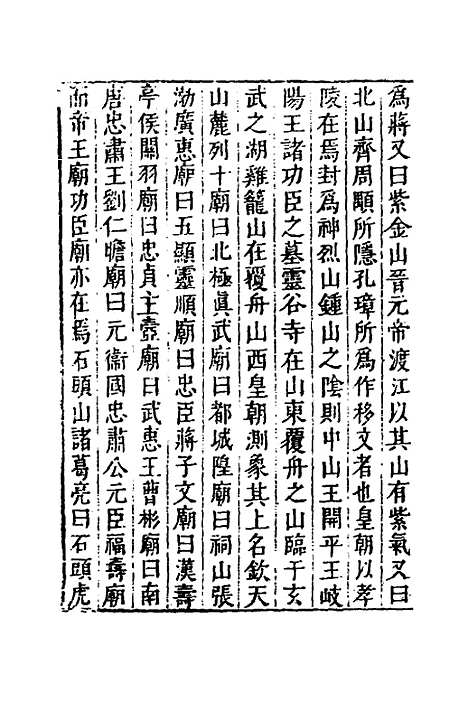 為蔣又曰紫金山晉元帝渡江以其山有紫氣又曰
北山齊周顒所隱孔璋所為作移文者也皇朝以孝
陵在焉封為神烈山鍾山之陰則中山王開平王岐
陽王諸功臣之墓靈谷寺在山東覆舟之山臨于玄
武之湖雞籠山在覆舟山西皇朝測象其上名欽天
山麓列十廟曰北極眞武廟曰都城隍廟曰祠山張
渤廣惠廟曰五顯靈順廟曰忠臣蔣子文廟曰漢壽
亭侯關羽廟曰忠貞主壼廟曰武惠王曹彬廟曰南
唐忠肅王劉仁瞻廟曰元衞國忠肅公元臣福壽廟
而帝王廟功臣廟亦在焉石頭山諸葛亮曰石頭虎